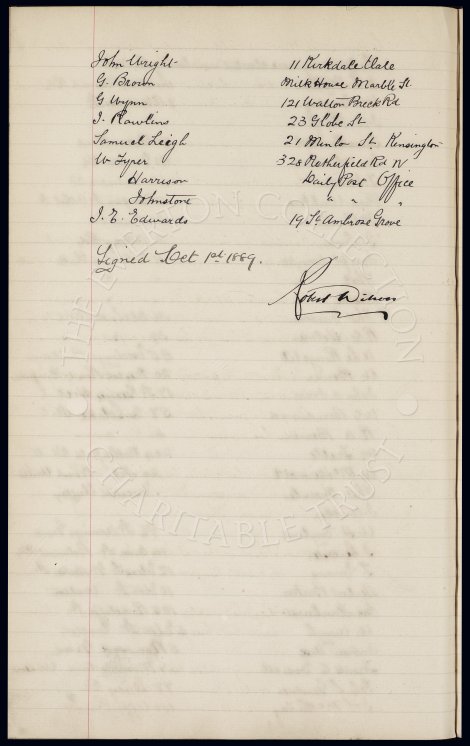 John Wright 11 Kirkdale Vale
G. Brown Milk House Marble St.
G Wynn 121 Walton Breck Rd
J. Rawlins 23 Globe St.
Samuel Leigh 21 Minto St. Kensington
W Fyper 328 Netherfield Rd N
Harrison Daily Post Office
Johnstone " " "
J. E. Edwards 19 St. Ambrose Grove
Signed Oct 1st 1889.
Robert Wilson
THE EVERTON COLLECTION
CHARITABLE TRUST